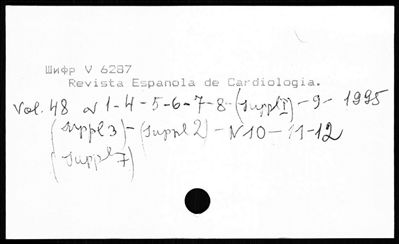 Шифр V 6287
Revista Espanola de Cardiologia.
Vol. 48 N 1-4-5-6-7-8-(suppl I)-9- 1995
(suppl 3)-(suppl 2)-N10-11-12
(suppl 7)